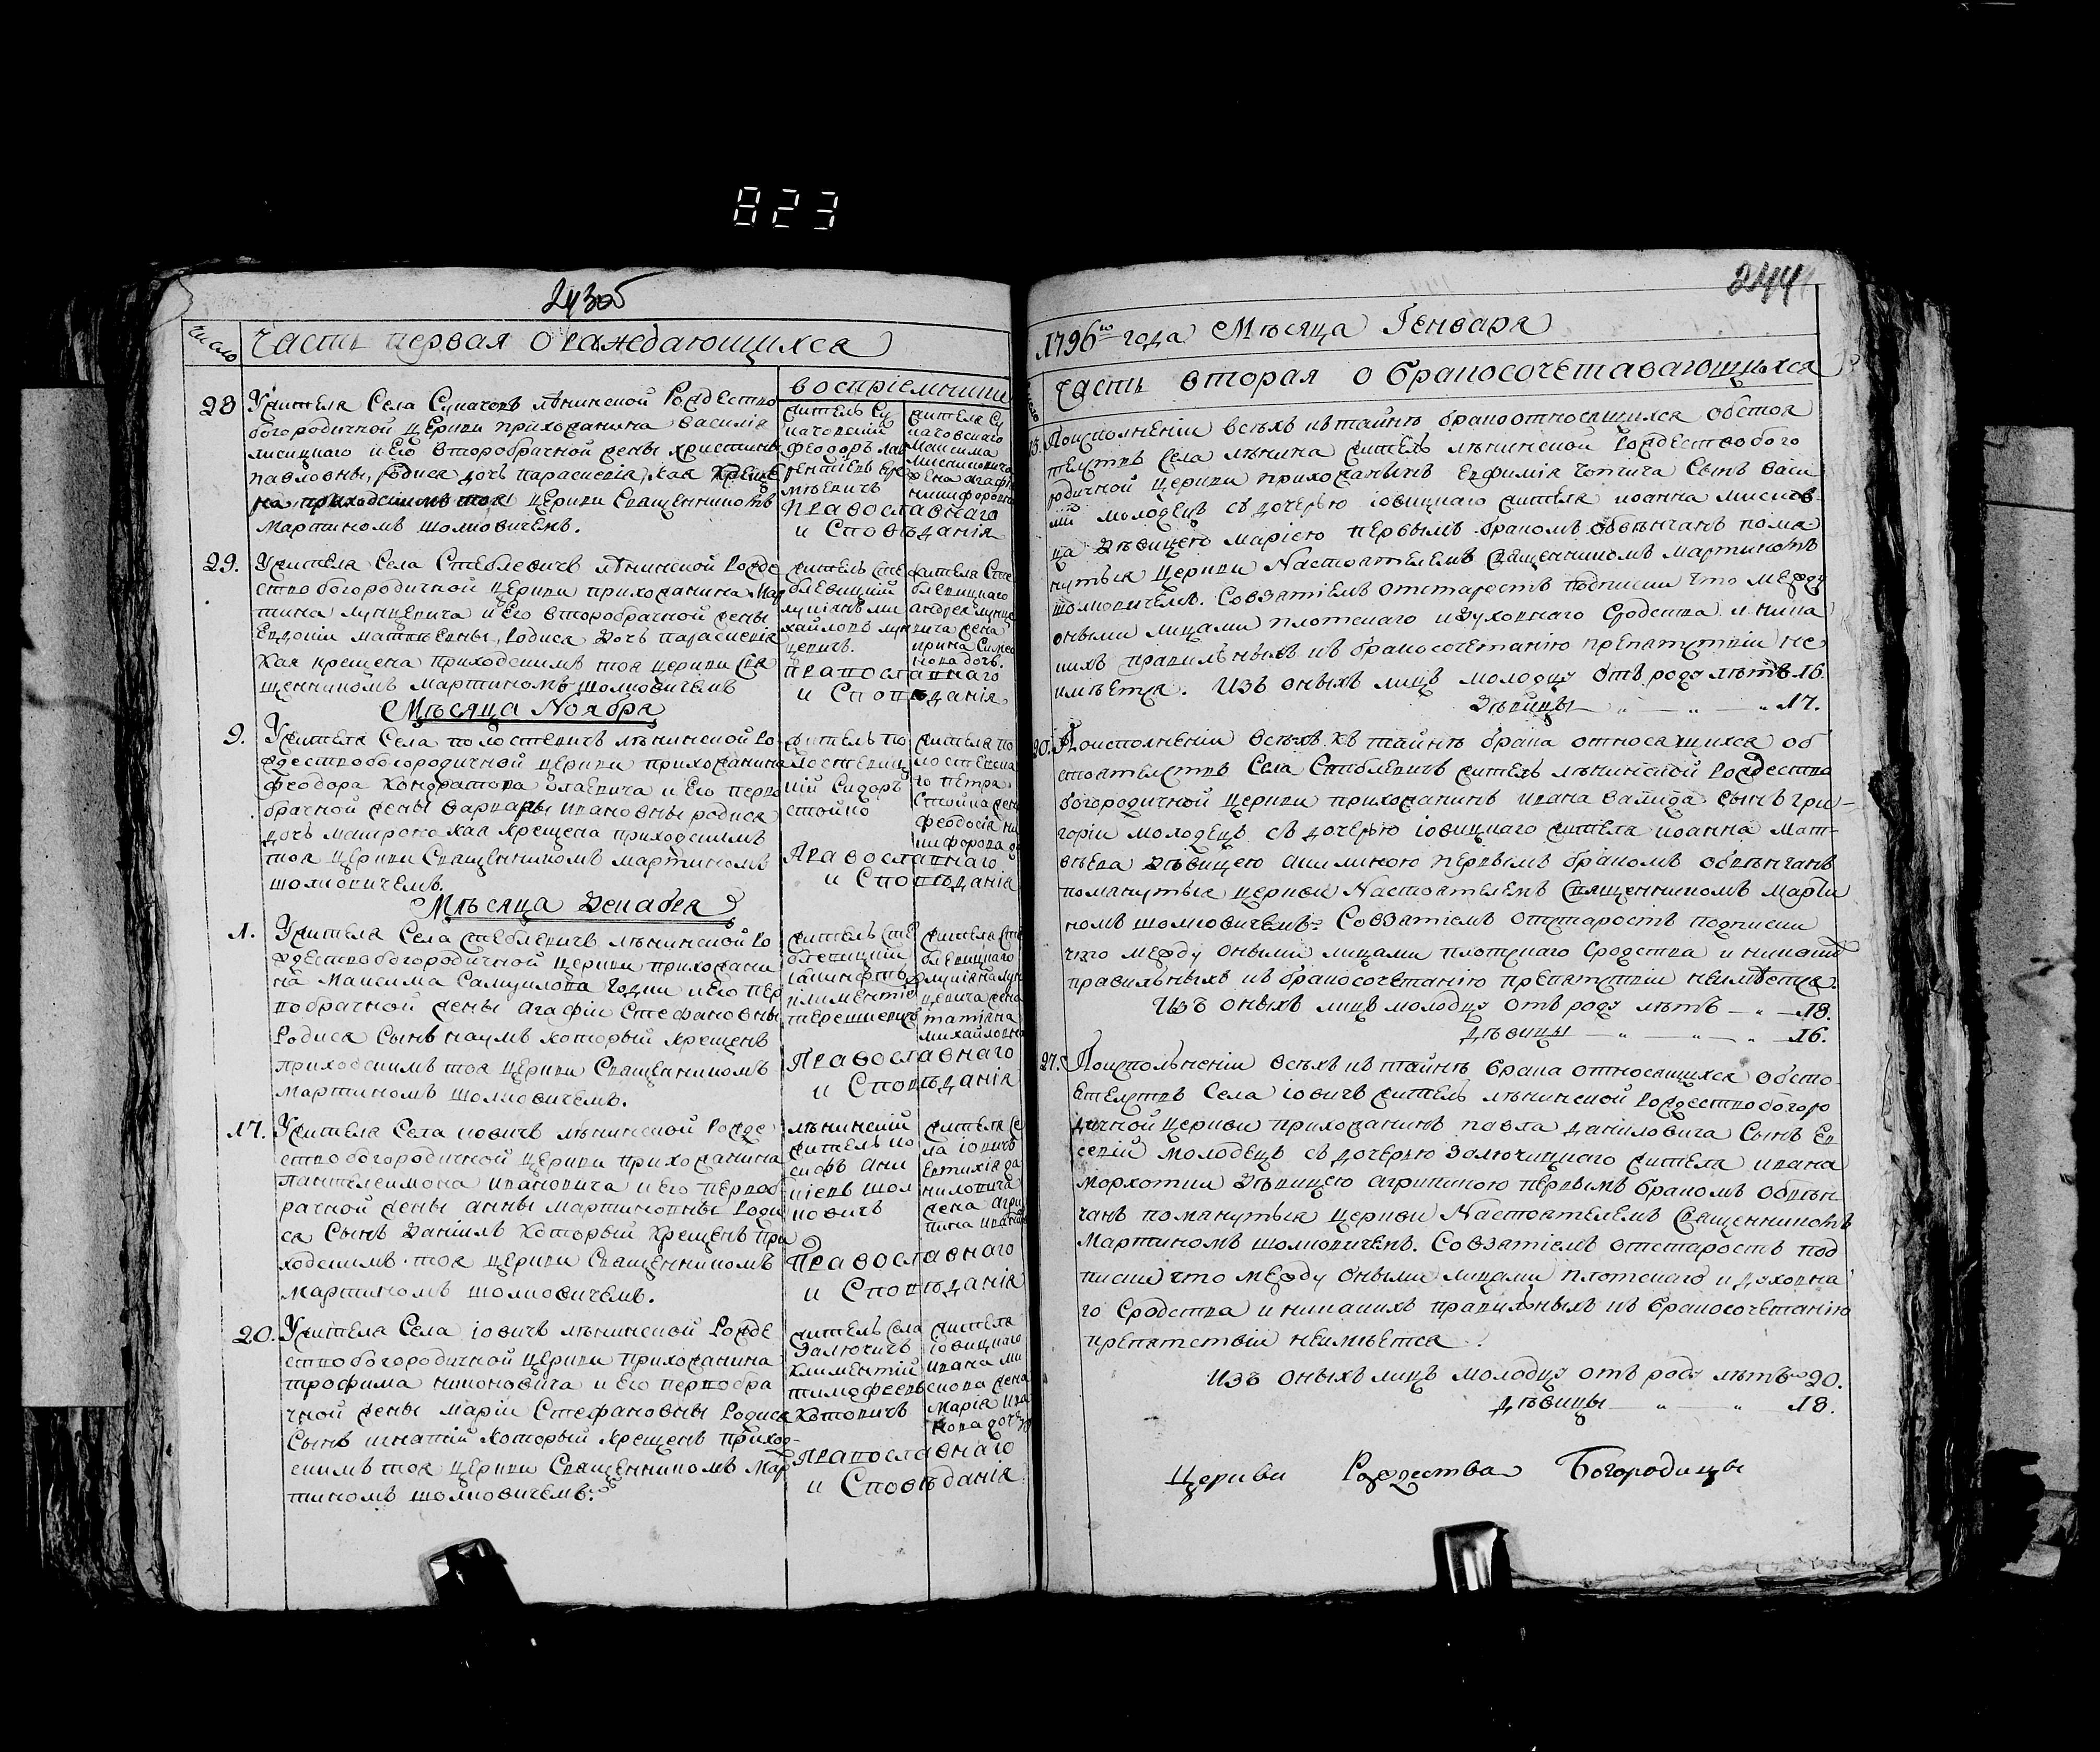 823
243об
число
Часть первая о раждающихся
воспріемники
28
Ужителя Села Сукачовъ лѣнинской Рождество
богородичной церкви прихожанина василія
лисицкаго и его второбрачной жены христины
павловны, родися дочь параскевія, кая креще
на приходскимъ тоя церкви Священникомъ
Мартиномъ шолковичемъ.
житель Су
качовскій
феодоръ лав
рентіевъ
житела Су
качовскаго
Максима
жена агафія
никифоровна
Православнаго
и Сповѣданія
29.
Ужителя Села Стеблевичъ лѣнинской Рожде
ство богородичной церкви прихожанина Мар
тина лунцевича и его второбрачной жены
Евдокіи матѳеевны, родися дочь параскевія
кая крещена приходскимъ тоя церкви Свя
щенникомъ мартиномъ шолковичемъ
житель Сте
блевицкій
лукіанъ ми
хайловъ лун
цевичъ.
жителя Сте
блевицкаго
андрея лунце
вича жена
ирина Симео
нова дочь.
православнаго
и Сповѣданія
Мѣсяца Ноября
9.
Ужителя Села полостевичъ лѣнинской Ро
ждество богородичной церкви прихожанина
Феодора Кондратова и его перво
брачной жены варвары ивановны родися
дочь матрона кая крещена приходскимъ
тоя церкви Священникомъ мартиномъ
шолковичемъ.
житель по
лостевиц
кій Сидоръ
стойко
жителя по
лостевска
го петра
Стойка жена
феодосія ни
кифорова до
Православнаго
и Сповѣданія
Мѣсяца Декабря
1.
Ужителя Села стеблевичъ лѣнинской Ро
ждество богородичной церкви прихожани
на Максима Самуилова Годки и его пер
вобрачной жены агафіи Стефановны
Родися Сынъ наумъ который крещенъ
приходскимъ тоя церкви Священникомъ
Мартиномъ шолковичемъ.
житель Сте
блевицкій
іакинфтъ
климентіе
терешкевичъ
жителя Сте
блевицкаго
лукіана лун
цевича жена
татіана
михайловна
Православнаго
и Сповѣданія
17.
Ужителя Села іовичъ лѣнинской Рожде
ство богородичной церкви прихожанина
пантелеимона ивановича и его первоб
рачной жены анны мартиновны роди
ся Сынъ Даніилъ который крещенъ при
ходскимъ тоя церкви Священникомъ
мартиномъ шолковичемъ.
лѣнинскій
житель іо
сифъ ани
кіевъ шол
ковичъ
жителя Се
ла іовичъ
Евтихія да
ниловича
жена агри
пина иванов
Православнаго
и Сповѣданія
20.
Ужителя Села іовичъ лѣнинской Рожде
ство богородичной церкви прихожанина
трофима никоновича и его первобра
чной жены маріи Стефановны Родися
Сынъ игнатій который крещенъ приход
скимъ тоя церкви Священникомъ Мар
тиномъ шолковичемъ.
житель Села
Залючичъ
климентій
тимофеевъ
Котовичъ
жителя
іовицкаго
ивана ми
снова жена
марія ива
нова дочь
православнаго
и Сповѣданія
244
1796го года Мѣсяца Генваря
Часть вторая о бракосочетавающихся
Поисполненіи всѣхъ к тайнѣ брака относящихся обстоя
телствъ Села лѣнина житель лѣнинской Рождествобого
родичной церкви прихожанынъ Ефимія Сынъ васи
лій молодецъ съ дочерью іовицкаго жителя иоанна
ца дѣвицею маріею первымъ бракомъ обвѣнчанъ помя
нутыя церкви Настоятелемъ Священникомъ мартиномъ
шолковичемъ. Совзятіемъ отстаростъ подписки что между
оными лицами плотскаго идуховнаго Сродства и ника
кихъ правилныхъ къ бракосочетанію препятствій не
имѣется. Изъ оныхъ лицъ молодцу отъ роду лѣтъ 16.
Дѣвицы — „ — „ — „ 17.
20.
Поисполненіи всѣхъ къ тайнѣ брака относящихся об
стоятелствъ Села Стеблевичъ житель лѣнинской Рождество
богородичной церкви прихожанинъ ивана валюда Сынъ гри
горій молодецъ съ дочерью іовицкаго жителя иоанна Мат
вѣева дѣвицею акилиною первымъ бракомъ обвѣнчанъ
помянутыя церкви Настоятелемъ Священникомъ Марти
номъ шолковичемъ. Совзятіемъ отстаростъ подписки
что между оными лицами плотскаго Сродства и никакихъ
правильныхъ къ бракосочетанію препятствіи неимѣется.
Изъ оныхъ лицъ молодцу отъ роду лѣтъ — „ — 18.
Дѣвицы — „ — „ — „ 16.
27.
Поисполненіи всѣхъ къ тайнѣ брака относящихся обсто
ятелствъ Села іовичъ житель лѣнинской Рождествобогоро
дичной церкви прихожанинъ павла даниловича Сынъ Ев
севій молодецъ съ дочерью Залючицкаго жителя ивана
Морхотки дѣвицею агрипиною первымъ бракомъ обвѣн
чанъ помянутыя церкви Настоятелемъ Священникомъ
Мартиномъ шолковичемъ. Совзятіемъ отстаростъ под
писки что между оными лицами плотскаго и духовна
го Сродства и никакихъ правильныхъ къ бракосочетанію
препятствіи неимѣется.
Изъ оныхъ лицъ молодцу отъ роду лѣтъ 20.
Дѣвицы — „ — „ — 18.
Церкви Рождества Богородицы